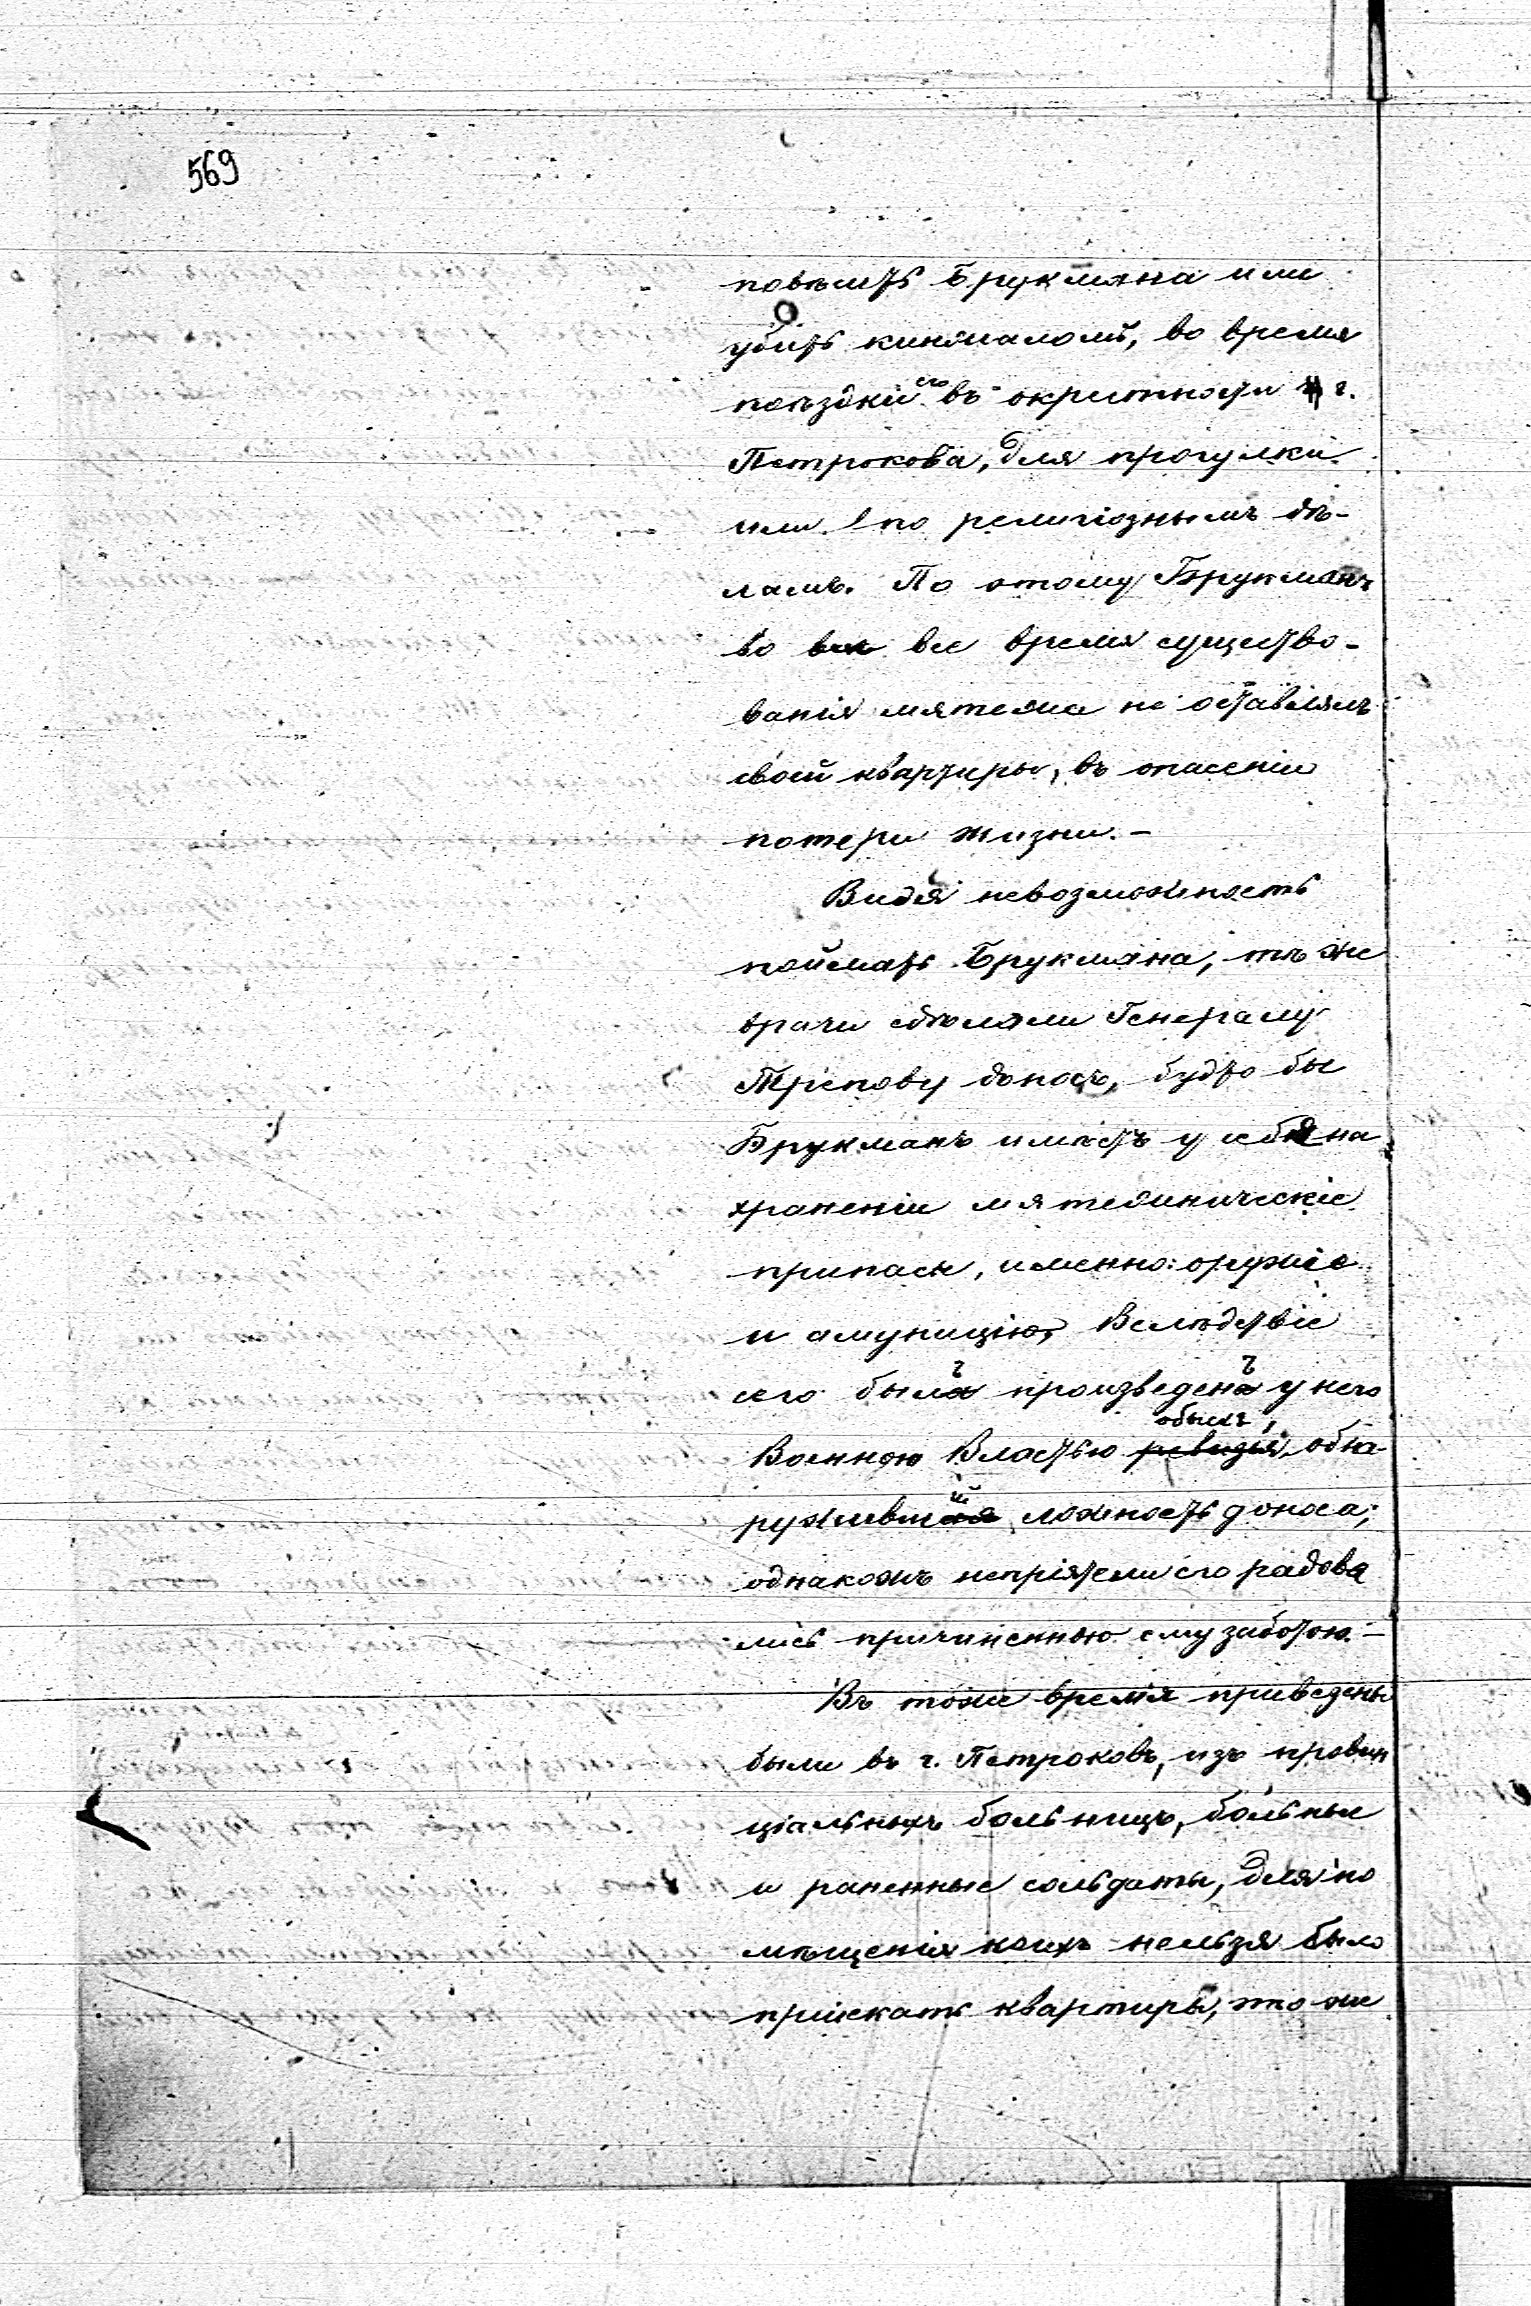 569
повѣсить Брукмана или
убить кинжаломъ, во время
поѣздки его въ окрестности г.
Петрокова, для прогулки
или по религіознымъ дѣ-
ламъ. По этому Брукманъ
во все время существо-
ванія мятежа не оставлялъ
своей квартиры, въ опасеніи
потери жизни. –
Видя невозможность
поймать Брукмана, тѣ же
врачи сдѣлали Генералу
Трепову доносъ, будто бы
Брукманъ имѣетъ у себя на
храненіи мятежническіе
припасы, именно: оружіе
и амуницію, Вслѣдствіе
сего былъ произведенъ у него
Военною Властью ревизія обыскъ, обна-
ружившій ложность доноса;
однакожъ непріятели его радова
лись причиненною ему заботою. –
Въ тоже время приведены
были въ г. Петроковъ, изъ провин
ціальныхъ больницъ, больные
и раненные солдаты, для по
мѣщенія коихъ нельзя было
пріискать квартиры, то же